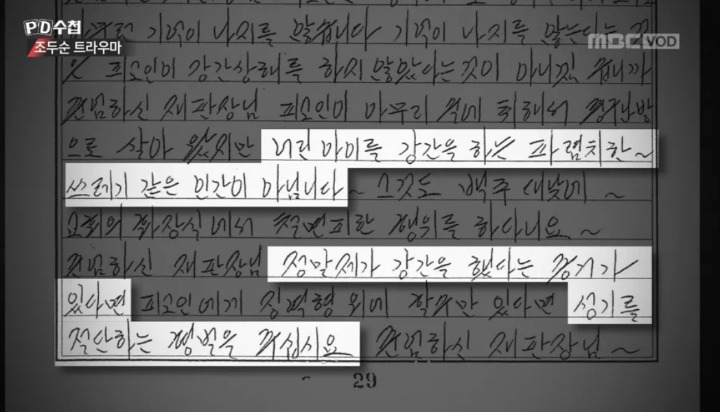 PD수첩
조두순 트라우마
MBC VOD
기억이 나지를 않습니다 기억이 나지를 않는다는 것
은 피고인이 강간상해를 하지 않았다는 것이 아니겠습니까
존경하신 재판장님 피고인이 아무리 술에 취해서
으로 살아 왔지만 어린 아이를 강간을 하는 파렴치한~
쓰레기 같은 인간이 아닙니다~ 그것도 백주 대낮에~
교회의 화장실에서 철면피한 행위를 하다니요~
존경하신 재판장님 정말 제가 강간을 했다는 증거가
있다면 피고인에게 징역형 외에 할 수만 있다면 성기를
절단하는 형벌을 주십시요 존경하신 재판장님~
29